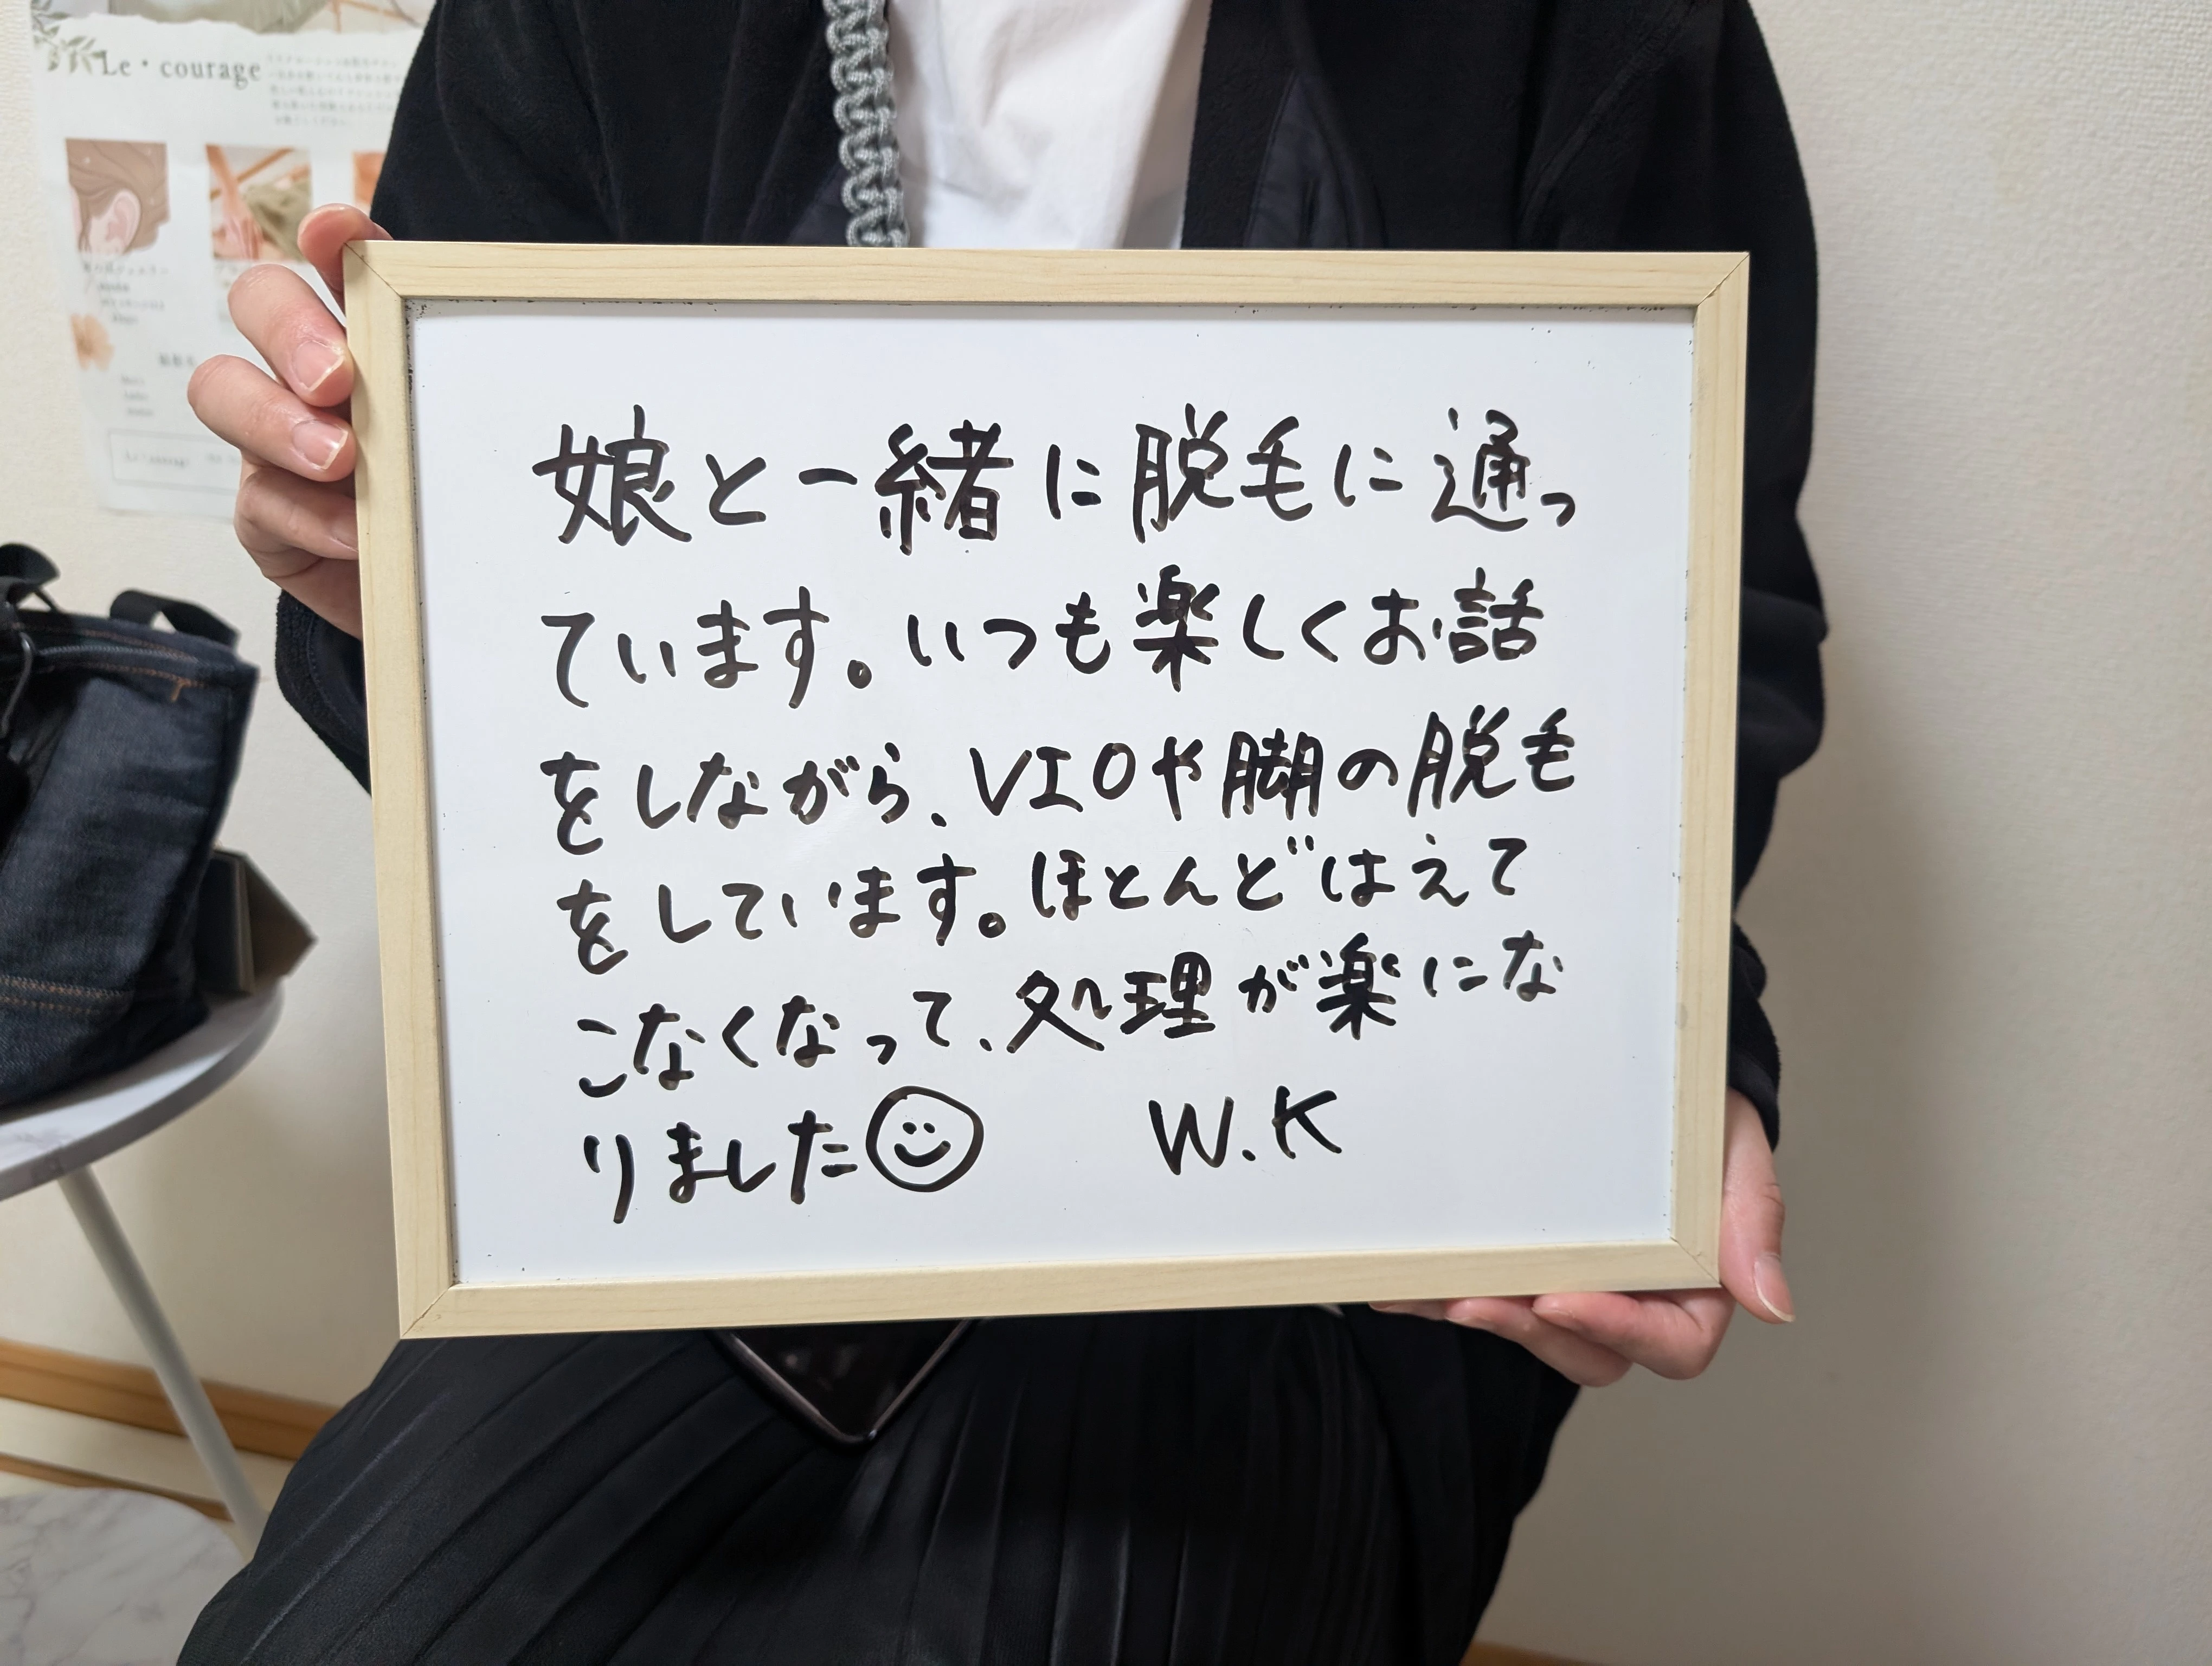 Le・courage
娘と一緒に脱毛に通っ
ています。いつも楽しくお話
をしながら、VIOや脚の脱毛
をしています。ほとんどはえて
こなくなって、処理が楽にな
りました☺ W.K